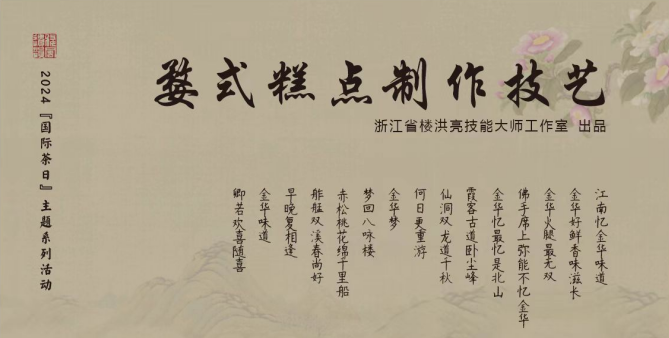 婺式糕点制作技艺
浙江省楼洪亮技能大师工作室 出品
2024『国际茶日』主题系列活动
江南忆金华味道
金华好鲜香味滋长
金华火腿最无双
佛手席上弥能不忆金华
金华忆最忆是北山
霞客古道卧尘峰
仙洞双龙道千秋
何日更重游
金华梦
梦回八咏楼
赤松桃花绵千里船
舴艋双溪春尚好
早晚复相逢
金华味道
卿若欢喜随喜